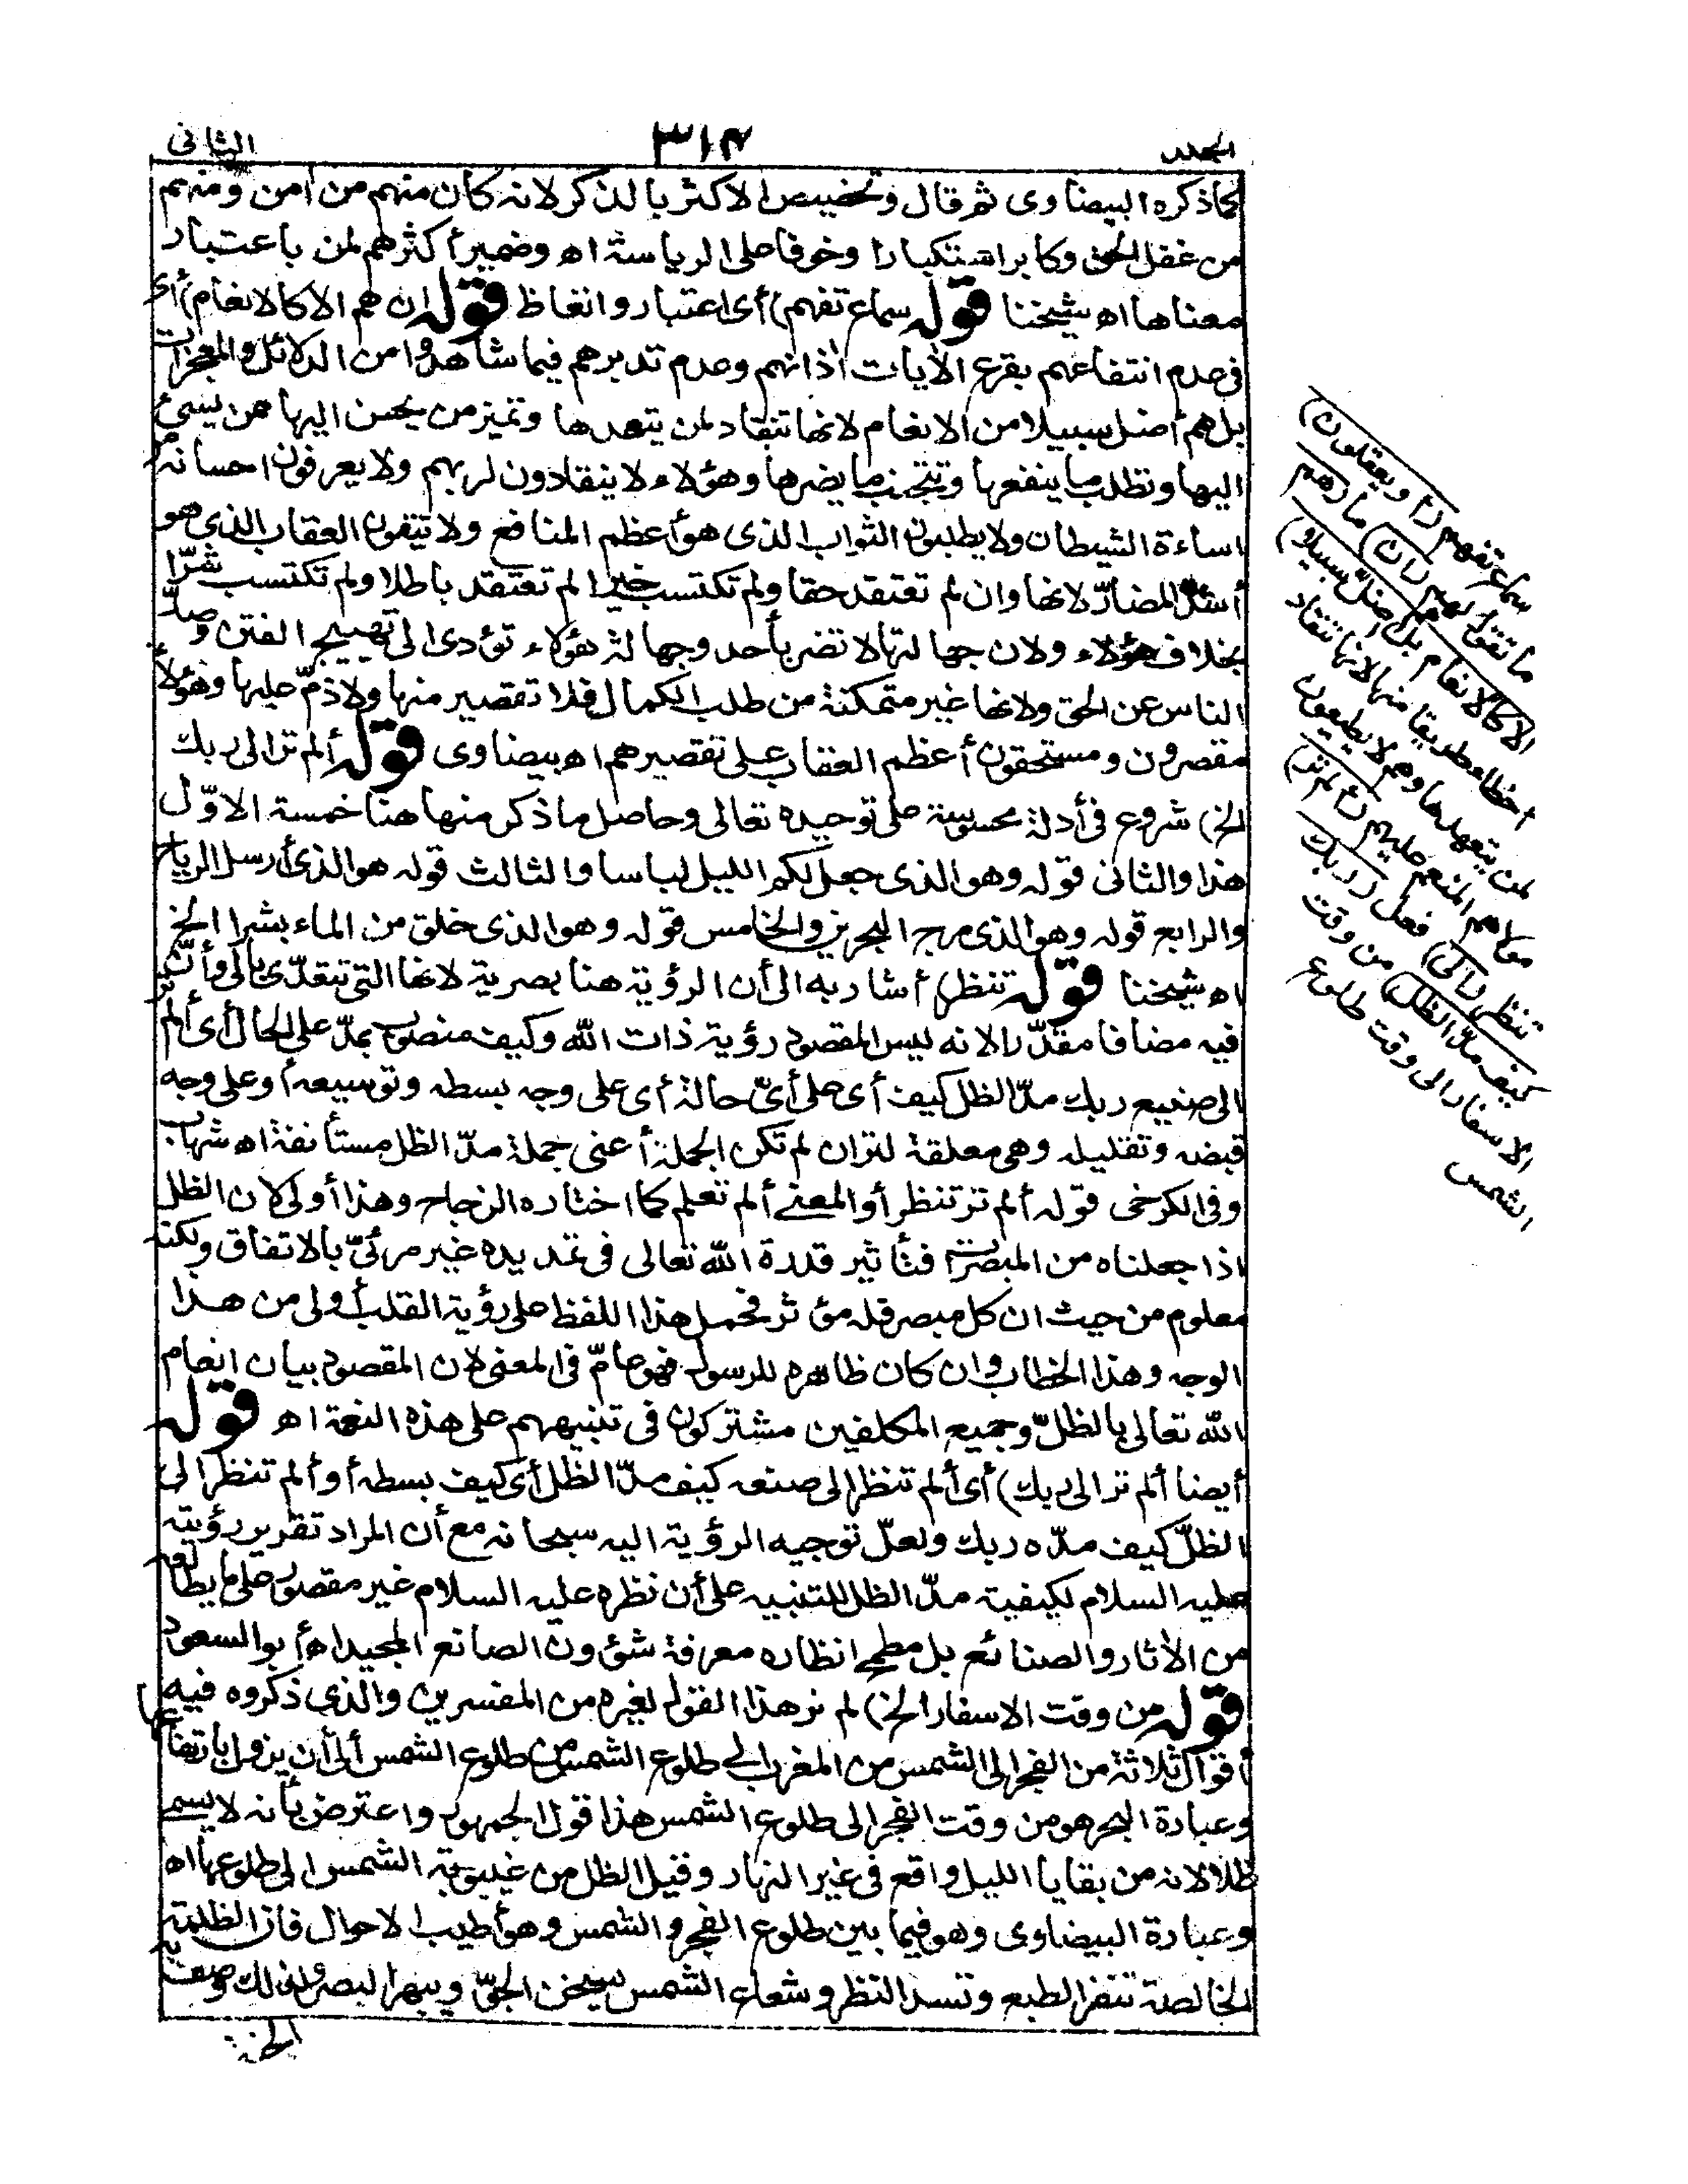 المجلد
٣١٤
الثانى
كما ذكره البيضاوى ثم قال وتخصيص الاكثر بالذكر لانه كان منهم من آمن ومنهم
من عقل الحق وكابر استكبارا وخوفا على الرياسة اه وضمير أكثرهم لمن باعتبار
معناها اه شيخنا قوله سماع تفهم) أى اعتبار واتعاظ قوله ان هم الا كالانعام) أى
فى عدم انتفاعهم بقرع الآيات آذانهم وعدم تدبرهم فيما شاهدوا من الدلائل والمعجزات
بل هم أضل سبيلا من الانعام لانها تنقاد لمن يتعهدها وتميز من يحسن اليها ممن يسئ
اليها وتطلب ما ينفعها وتتجنب ما يضرها وهؤلاء لا ينقادون لربهم ولا يعرفون احسانه من
اساءة الشيطان ولا يطلبون الثواب الذى هو أعظم المنافع ولا يتقون العقاب الذى هو
أشد المضارّ لانها وان لم تعتقد حقا ولم تكتسب خيرا لم تعتقد باطلا ولم تكتسب شرّا
بخلاف هؤلاء ولان جهالتها لا تضر بأحد وجهالة هؤلاء تؤدى الى تهييج الفتن وصدّ
الناس عن الحق ولانها غير متمكنة من طلب الكمال فلا تقصير منها ولا ذمّ عليها وهؤلاء
مقصرون ومستحقون أعظم العقاب على تقصيرهم اه بيضاوى قوله ألم تر الى ربك
الخ) شروع فى أدلة محسوسة على توحيده تعالى وحاصل ما ذكر منها هنا خمسة الاوّل
هذا والثانى قوله وهو الذى جعل لكم الليل لباسا والثالث قوله هو الذى أرسل الرياح
والرابع قوله وهو الذى مرج البحرين والخامس قوله وهو الذى خلق من الماء بشرا الخ
اه شيخنا قوله تنظر) أشار به الى أن الرؤية هنا بصرية لانها التى تتعدّى بالى وأنّ
فيه مضافا مقدّرا لانه ليس المقصود رؤية ذات الله وكيف منصوب بمدّ على الحال أى ألم تر
الى صنيع ربك مدّ الظل كيف أى على أىّ حالة أى على وجه بسطه وتوسيعه أو على وجه
قبضه وتقليله وهى معلقة لتر ان لم تكن الجملة أعنى جملة مدّ الظل مستأنفة اه شهاب
وفى الكرخى قوله ألم تر تنظر أو المعنى ألم تعلم كما اختاره الزجاج وهذا أولى لان الظل
اذا جعلناه من المبصرات فتأثير قدرة الله تعالى فى تمديده غير مرئىّ بالاتفاق ولكنه
معلوم من حيث ان كل مبصر فله مؤثر فحمل هذا اللفظ على رؤية القلب أولى من هذا
الوجه وهذا الخطاب وان كان ظاهره للرسول فهو عامّ فى المعنى لان المقصود بيان انعام
الله تعالى بالظلّ وجميع المكلفين مشتركون فى تنبيههم على هذه النعمة اه قوله
أيضا ألم تر الى ربك) أى ألم تنظر الى صنعه كيف مدّ الظل أى كيف بسطه أو ألم تنظر الى
الظلّ كيف مدّه ربك ولعلّ توجيه الرؤية اليه سبحانه مع أن المراد تقرير رؤيته
عليه السلام لكيفية مدّ الظل للتنبيه على أن نظره عليه السلام غير مقصور على ما يطالعه
من الآثار والصنائع بل مطمح انظاره معرفة شؤون الصانع المجيد اه أبو السعود
قوله من وقت الاسفار الخ) لم نر هذا القول لغيره من المفسرين والذى ذكروه فيه
أقوال ثلاثة من الفجر الى الشمس من المغرب الى طلوع الشمس من طلوع الشمس الى أن يزول بارتفاعها
وعبارة البحر هو من وقت الفجر الى طلوع الشمس هذا قول الجمهور واعترض بأنه لا يسمى
ظلا لانه من بقايا الليل واقع فى غير النهار وقيل الظل من غيبوبة الشمس الى طلوعها اه
وعبارة البيضاوى وهو فيما بين طلوع الفجر والشمس وهو أطيب الاحوال فان الظلمة
الخالصة تنفر الطبع وتسد النظر وشعاع الشمس يسخن الجوّ ويبهر البصر ولذلك وصف به
الجنة
سماع تفهم (أو يعقلون)
ما تقول لهم (ان) ما (هم
الا كالانعام بل هم أضلّ سبيلا)
أخطأ طريقا منها لانها تنقاد
لمن يتعهدها وهم لا يطيعون
مولاهم المنعم عليهم (ألم تر)
تنظر (الى) فعل (ربك
كيف مدّ الظل) من وقت
الاسفار الى وقت طلوع
الشمس